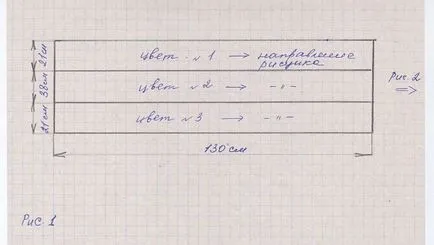 21см
цвет №1 → направление
рисунка
38см
цвет №2 → -"-
Рис. 2
⇒
21см
цвет №3 → -"-
130 см
Рис. 1